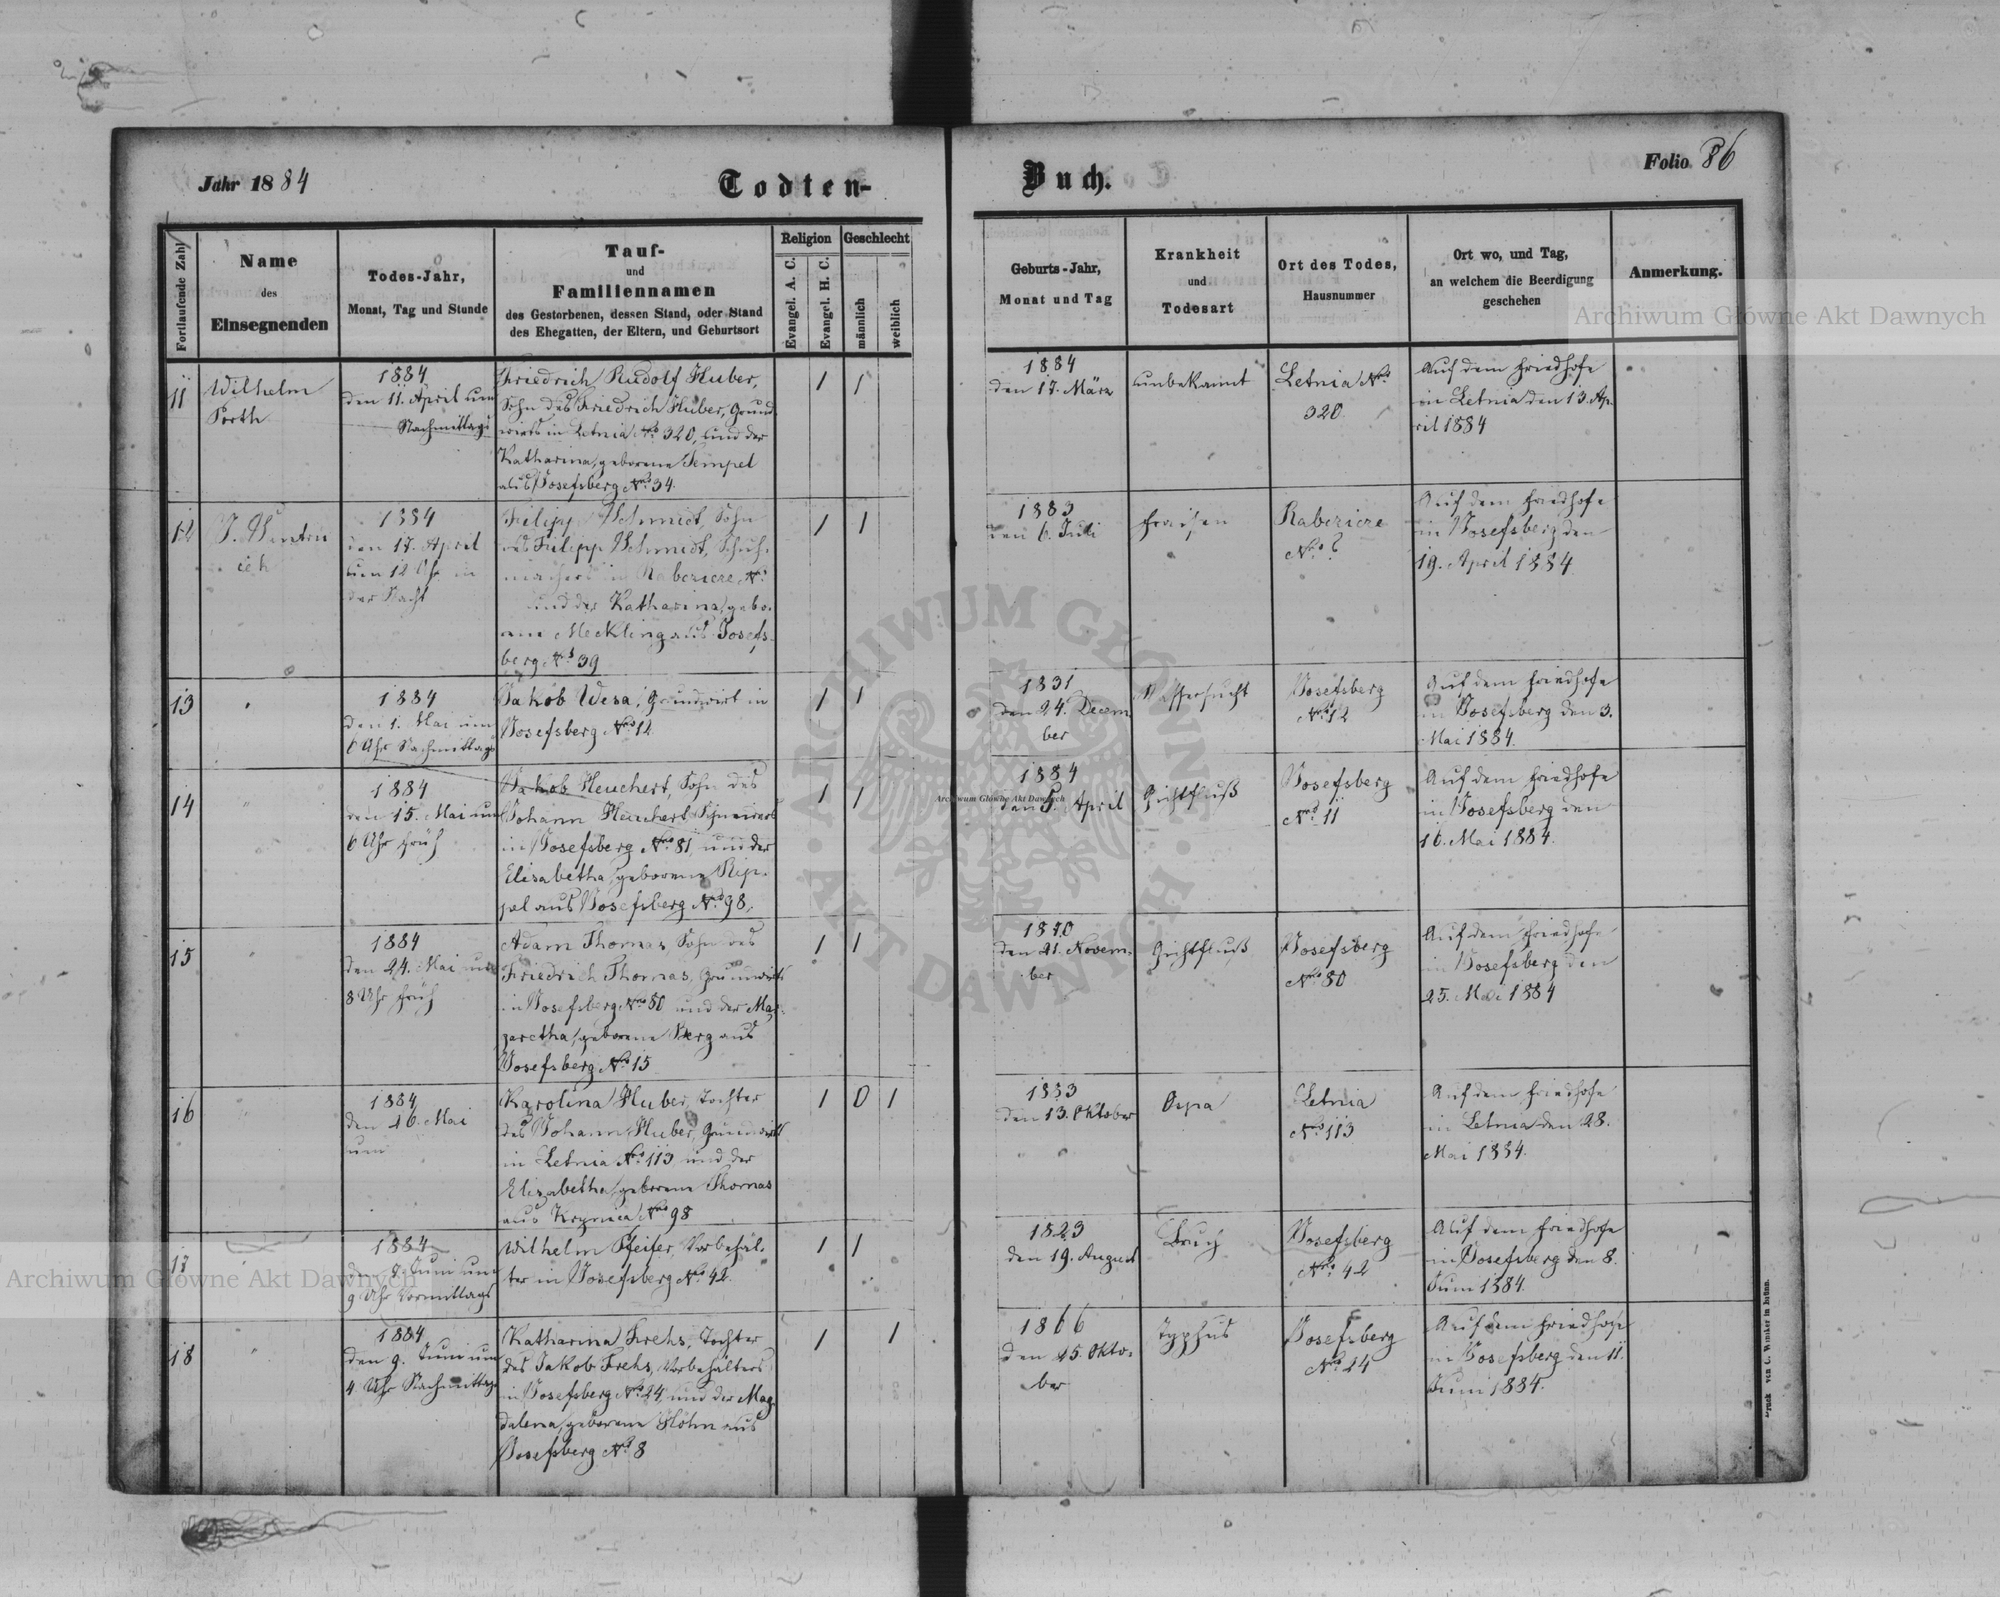 Jahr 1884
Todten-
Buch.
Folio 86
Fortlaufende Zahl
Name
des
Einsegnenden
Todes-Jahr,
Monat, Tag und Stunde
Tauf-
und
Familiennamen
des Gestorbenen, dessen Stand, oder Stand
des Ehegatten, der Eltern, und Geburtsort
Religion
Evangel. A. C.
Evangel. H. C.
Geschlecht
männlich
weiblich
Geburts-Jahr,
Monat und Tag
Krankheit
und
Todesart
Ort des Todes,
Hausnummer
Ort wo, und Tag,
an welchem die Beerdigung
geschehen
Anmerkung.
11
Wilhelm
Porth
1884
den 11. April um
Nachmittags
Friedrich Rudolf Huber,
Sohn des Friedrich Huber, Grund-
wirts in Letnia Nro 320, und der
Katharina, geborene Tempel
aus Josefsberg Nro 34.
1
1
1884
den 17. März
unbekannt
Letnia Nro
320
Auf dem Friedhofe
in Letnia den 13. Ap-
ril 1884
12
1884
den 17. April
um 12 Uhr in
der Nacht
Filipp Schmidt, Sohn
des Filipp Schmidt, Schuh-
machers in Raberiere, No
und der Katharina, gebo-
rene Meckling aus Josefs-
berg No 39
1
1
1883
den 6. Juli
Fraisen
Raberiere
No ?
Auf dem Friedhofe
in Josefsberg den
19. April 1884
13
1884
den 1. Mai um
6 Uhr Nachmittags
Jakob Wesa, Grundwirt in
Josefsberg Nro 12
1
1
1831
den 24. Decem-
ber
Wassersucht
Josefsberg
Nro 12
Auf dem Friedhofe
in Josefsberg den 3.
Mai 1884.
14
"
1884
den 15. Mai um
6 Uhr früh
Jakob Heuchert, Sohn des
Johann Heuchert, Schneiders
in Josefsberg Nro 81, und der
Elisabetha, geborene Rip-
pel aus Josefsberg Nro 98,
1
1
1884
den 5. April
Gichtfluß
Josefsberg
Nro 11
Auf dem Friedhofe
in Josefsberg den
16. Mai 1884.
15
"
1884
den 24. Mai um
8 Uhr früh
Adam Thomas, Sohn des
Friedrich Thomas, Grundwirts
in Josefsberg Nro 80 und der Mar-
garetha, geborene Berg aus
Josefsberg Nro 15
1
1
den 21. Novem-
ber
Gichtfluß
Josefsberg
Nro 80
Auf dem Friedhofe
in Josefsberg den
25. Mai 1884
16
"
1884
den 26. Mai
um
Karolina Huber, Tochter
des Johann Huber, Grundwirts
in Letnia No 113 und der
Elizabetha, geborene Thomas
aus Krynica Nro 98
1
0
1
1883
den 13. Oktober
Ospa
Letnia
Nro 113
Auf dem Friedhofe
in Letnia den 28.
Mai 1884.
17
1884
den 8. Juni um
9 Uhr Vormittags
Wilhelm Pfeifer, Vorbehäl-
ter in Josefsberg No 42.
1
1
1823
den 19. August
Bruch
Josefsberg
Nro 42
Auf dem Friedhofe
in Josefsberg den 8.
Juni 1884.
18
"
1884
den 9. Juni um
4 Uhr Nachmittags
Katharina Frehs, Tochter
des Jakob Frehs, Vorbehälters
in Josefsberg Nro 24, und der Mag-
dalena, geborene Höhn aus
Josefsberg No 8
1
1
1866
den 25. Okto-
ber
Typhus
Josefsberg
Nro 24
Auf dem Friedhofe
in Josefsberg den 11.
Juni 1884.
Druck von C. Winiker in Brünn.
Archiwum Główne Akt Dawnych
Archiwum Główne Akt Dawnych
Archiwum Główne Akt Dawnych
ARCHIWUM GŁÓWNE · AKT DAWNYCH ·